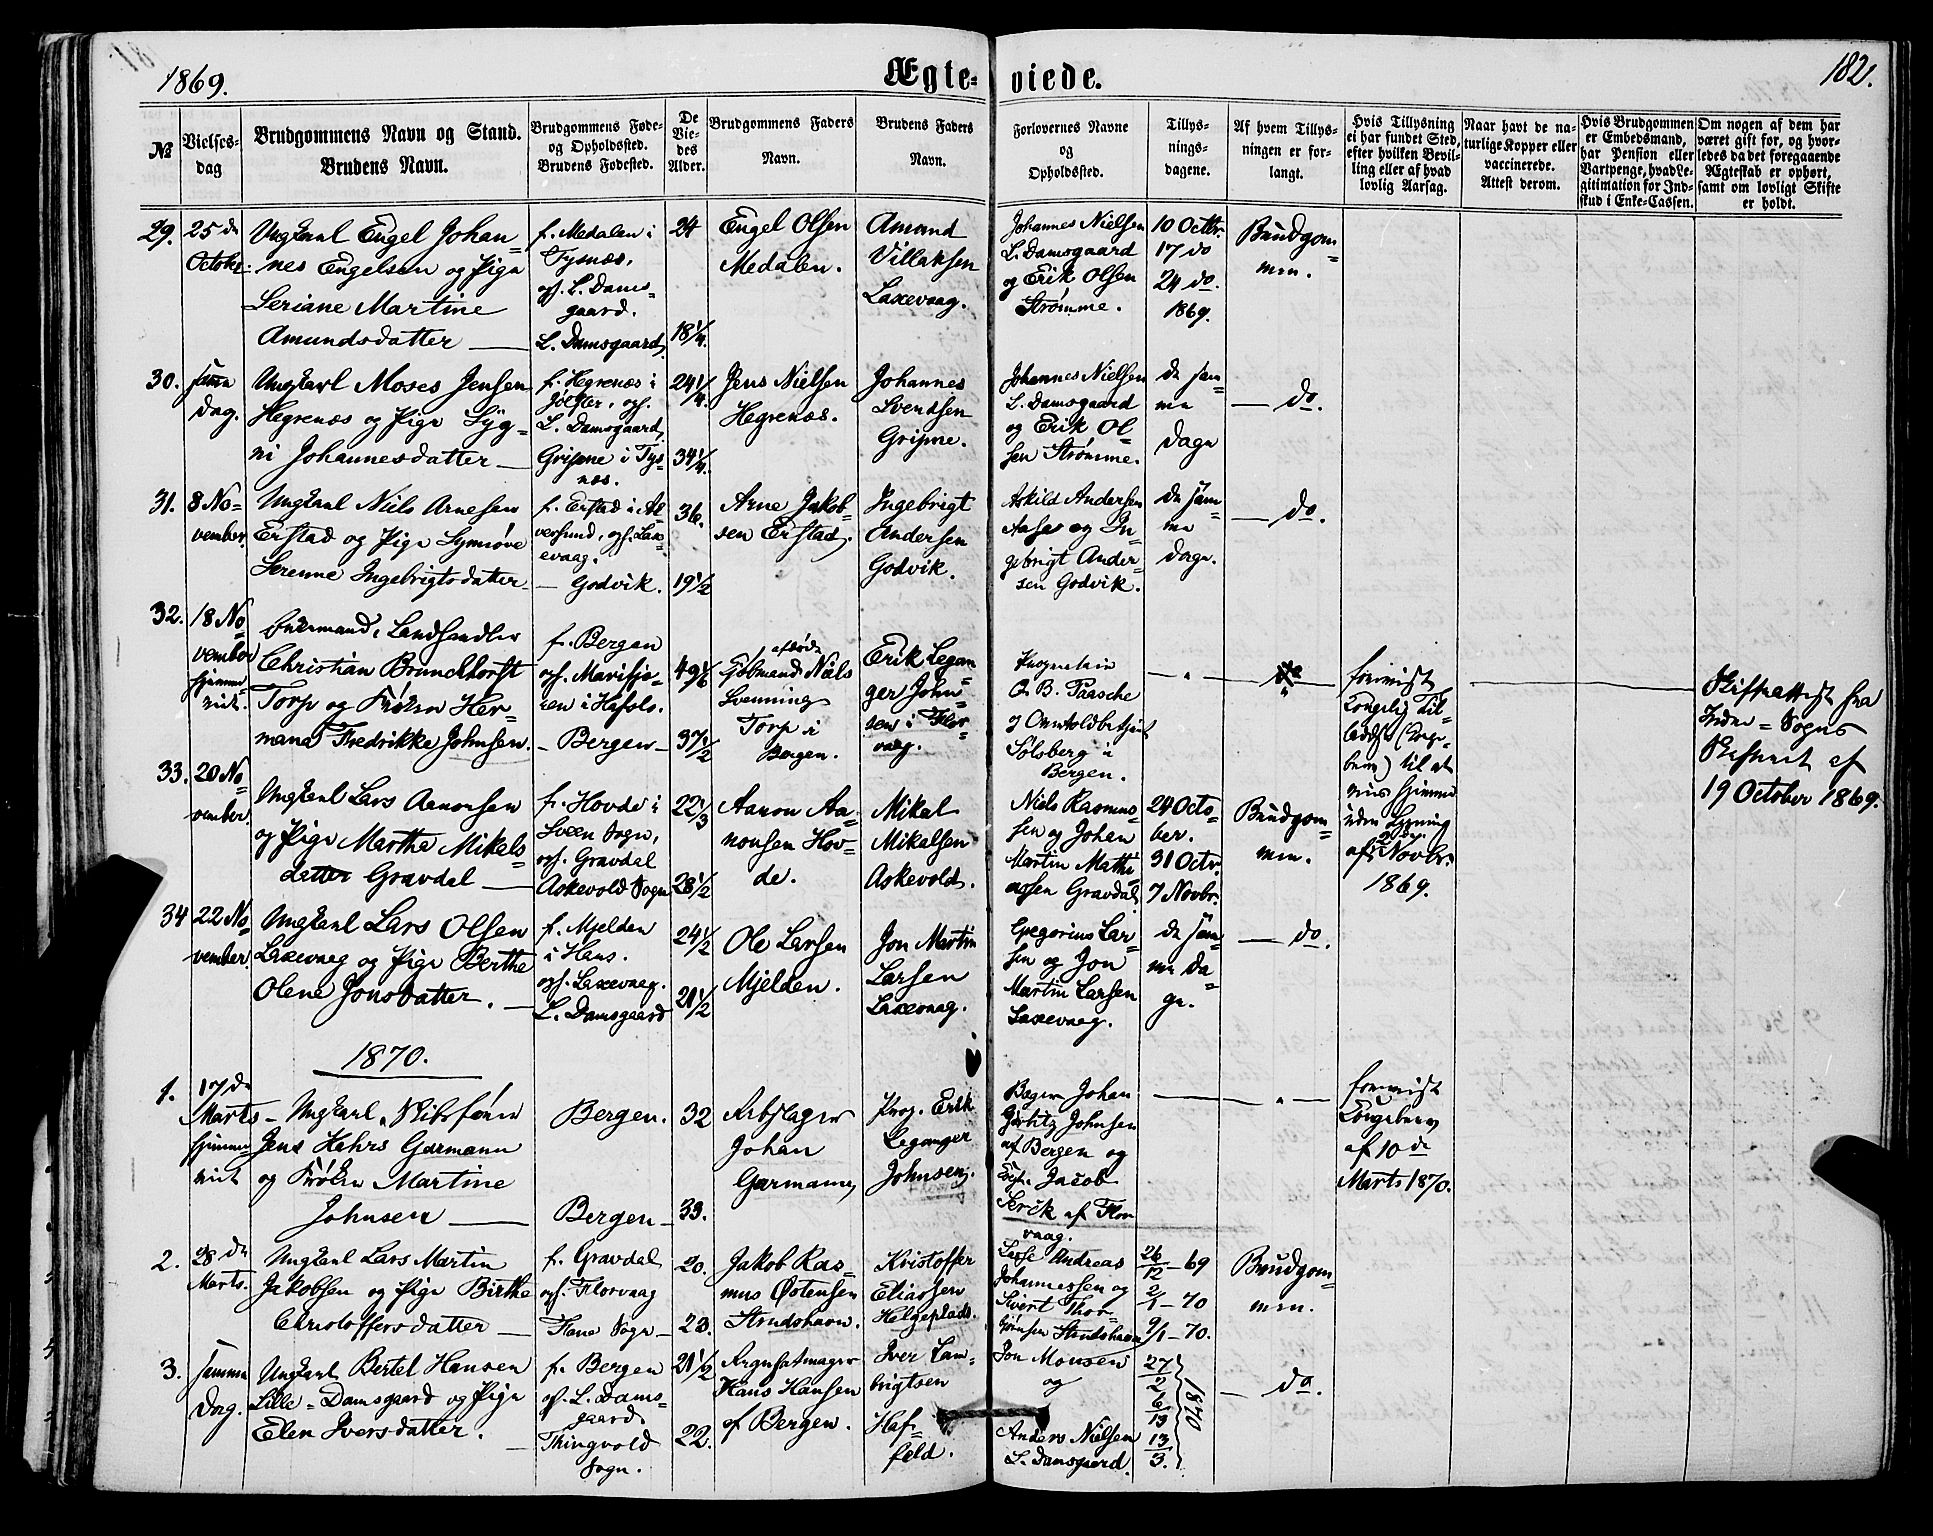 1869.
Ægteviede.
182.
№
Vielsesdag
Brudgommens Navn og Stand.
Brudens Navn.
Brudgommens Føde-
og Opholdssted.
Brudens Fødested.
De
Vie-
des
Alder.
Brudgommens Faders
Navn.
Brudens Faders
Navn.
Forlovernes Navne
og
Opholdssted.
Tillys-
nings-
dagene.
Af hvem Tillys-
ningen er for-
langt.
Hvis Tillysning
ei har fundet Sted,
efter hvilken Bevil-
ling eller af hvad
lovlig Aarsag.
Naar havt de na-
turlige Kopper eller
vaccinerede.
Attest derom.
Hvis Brudgommen
er Embedsmand,
har Pension eller
Vartpenge, hvad Le-
gitimation for Ind-
skud i Enke-Cassen.
Om nogen af dem har
været gift før, og hvor-
ledes da det foregaaende
Ægteskab er ophørt,
samt om lovligt Skifte
er holdt.
29.
25de
Octobr.
Ungkarl Engel Johan-
nes Engelsen og Pige
Seriane Martine
Amundsdatter
f. Medalen i
Tysnæs,
oph. L. Dams-
gaard.
L. Damsgaard
24
18 1/4.
Engel Olsen
Medalen.
Amund
Villaksen
Laxevaag.
Johannes Nielsen
L. Damsgaard
og Erik Olsen
Strømme.
10 Octbr.
17 do
24 do.
1869.
Brudgom-
men.
30.
samme
Dag.
Ungkarl Moses Jensen
Hegrenæs og Pige Syg-
ni Johannesdatter
f. Hegrenæs i
Jølster, oph.
L. Damsgaard
Gripne i Tys-
næs.
24 1/4.
34 1/4.
Jens Nielsen
Hegrenæs.
Johannes
Svendsen
Gripne.
Johannes Nielsen
L. Damsgaard
og Erik Ol-
sen Strømme.
de sam-
me
Dage
do.
31.
8 No-
vember.
Ungkarl Niels Arnesen
Erstad og Pige Synnøve
Serenne Ingebrigtsdatter
f. Erstad i Al-
versund, oph. Lax-
evaag.
Godvik.
36.
19 1/2
Arne Jakob-
sen Erstad.
Ingebrigt
Andersen
Godvik.
Askild Andersen
og In-
gebrigt Ander-
sen Godvik.
de sam-
me
Dage.
do.
32.
18 No-
vember
hjemme-
viet.
Enkemand, Landhandler
Christian Brunchhorst
Torp og Frøken Her-
mana Fredrikke Johnsen.
f. Bergen
oph. Marifjø-
ren i Hafslo.
Bergen
49 1/6
37 1/2
afdøde
Kjøbmand Niels
Svenning
Torp i
Bergen.
Erik Legan-
ger John-
sen i Flor-
vaag.
O. B. Paasche
Solsberg i
Bergen.
forevist
Kongelig Til-
ladelse (Konge-
brev) til at
vies hjemme
uden Lysning
af 2 Novbr.
1869.
Skifteattest fra
Indre-Sogns
Skifteret af
19 October 1869.
33.
20 No-
vember.
Ungkarl Lars Aanonsen
og Pige Marthe Mikels-
datter Gravdal
f. Hovde i
Sveen Sogn,
oph. Gravdal
Askevold Sogn
22 1/3
28 1/2
Aanon Aa-
nonsen Hov-
de.
Mikal
Mikalsen
Askevold.
Niels Rasmus-
sen og Johan
Martin Mathi-
assen Gravdal
24 Octo-
ber.
31 Octr.
7 Novbr.
Brudgom-
men.
34
22 No-
vember.
Ungkarl Lars Olsen
Laxevaag og Pige Berthe
Olene Jonsdatter.
f. Mjelden
i Haus.
oph. Laxevaag.
L. Damsgaard
24 1/2
21 1/2
Ole Larsen
Mjelden.
Jon Martin
Larsen
Laxevaag.
Gregorius Lar-
sen og Jon
Martin Larsen
Laxevaag.
de sam-
me Da-
ge.
do.
1870.
1.
17de
Marts
hjemme-
viet
Ungkarl, Skibsfører
Jens Hehrs Garmann
og Frøken Martine
Johnsen
Bergen.
Bergen
32
33.
Rebslager
Johan
Garmann
Prop. Erik
Leganger
Johnsen.
Bager Johan
Johnsen
af Bergen og
Jacob
Serck af Flor-
vaag.
forevist
Kongebrev
af 10de
Marts 1870.
2.
28de
Marts.
Ungkarl Lars Martin
Jakobsen og Pige Birthe
Christoffersdatter
f. Gravdal
oph. Florvaag
Fane Sogn
20.
23.
Jakob Ras-
mus Østensen
Strudshavn.
Kristoffer
Eliassen
Helgeplads.
Lasse Andreas
Johannessen og
Sivert Thor-
bjørnsen Strudshavn
26/12 - 69
2/1 - 70
9/1 - 70.
Brudgom-
men.
3.
samme
Dag.
Ungkarl Bertel Hansen
Lille-Damsgaard og Pige
Elen Iversdatter.
f. Bergen
oph. L. Dams-
gaard.
Thingvold
Sogn.
21 1/2
22.
Hans Hansen
af Bergen.
Iver Lam-
brigtsen
Haf-
feld.
Jon Monsen
og
Anders Nielsen
L. Damsgaard.
27/2
6/13
13/3.
1870
do.